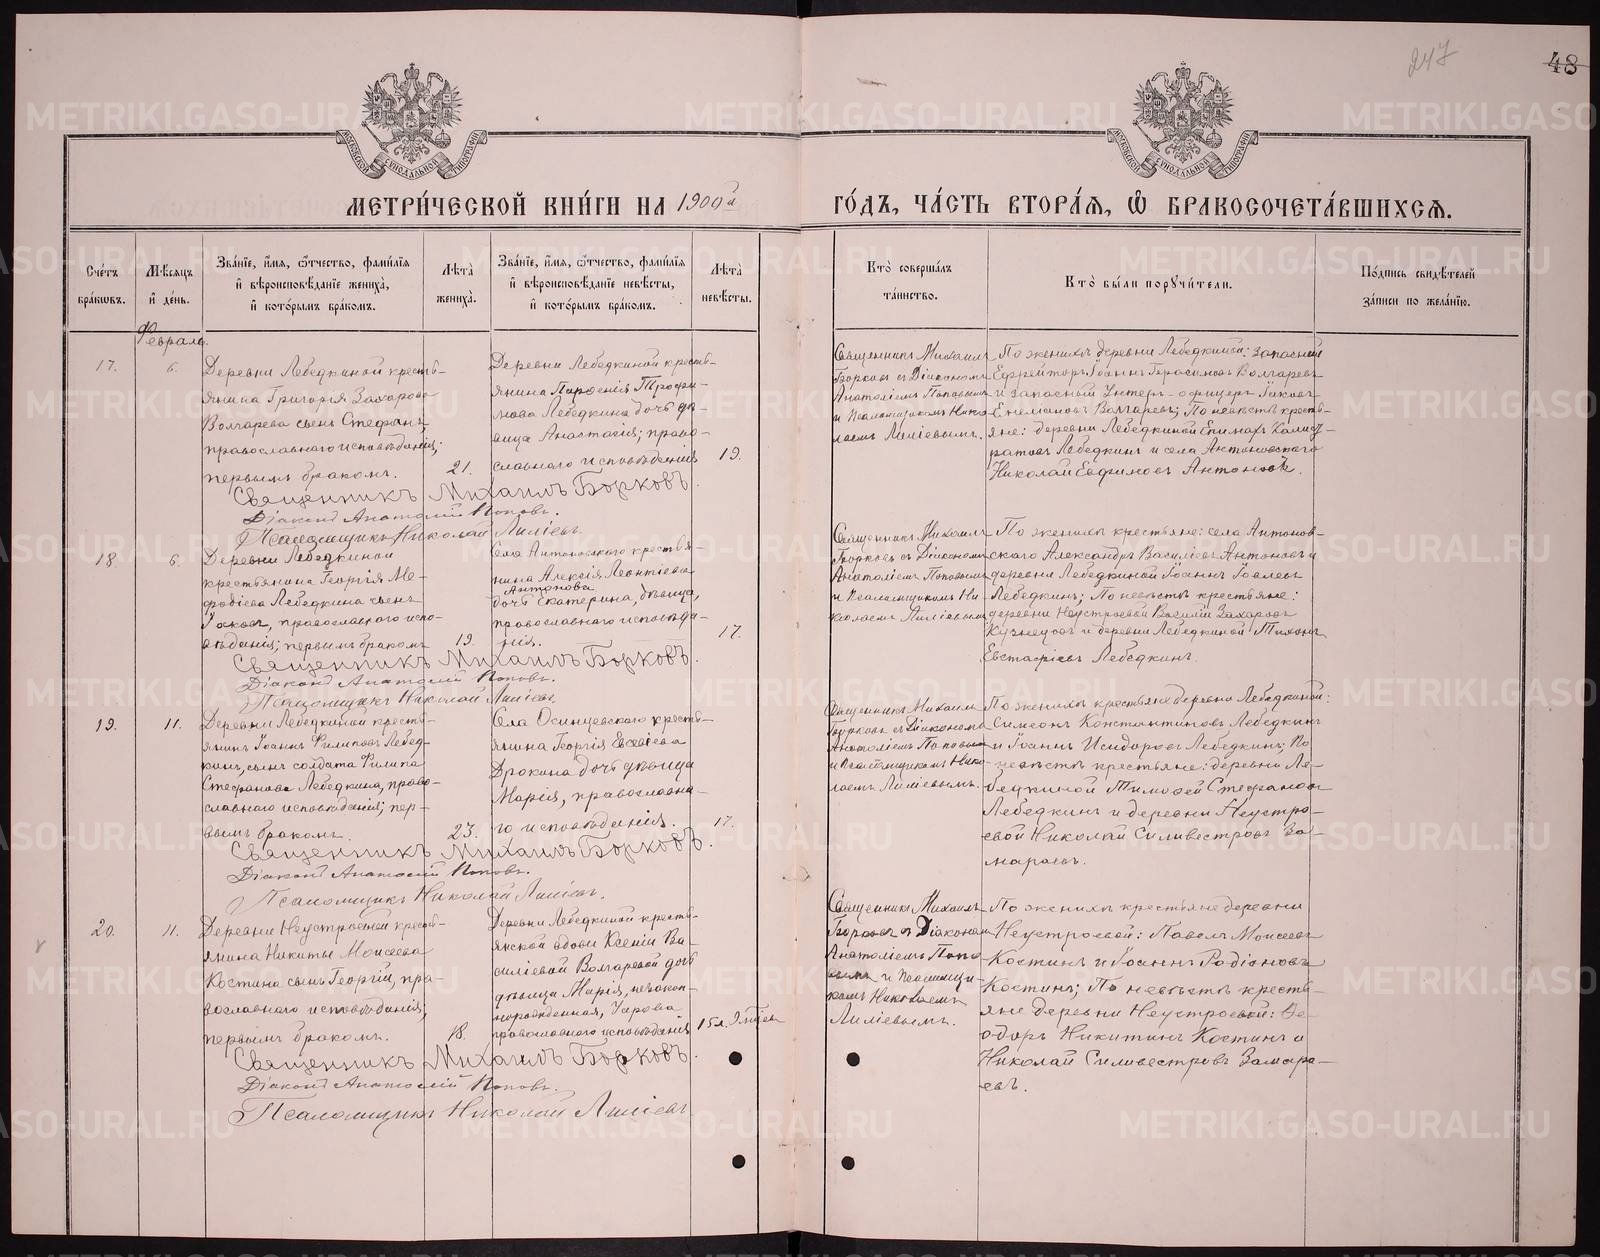 247
48
МЕТРИ́ЧЕСКОЙ КНИ́ГИ НА 1900й
ГО́ДЪ, ЧА́СТЬ ВТОРА́Я, Ѡ БРАКОСОЧЕТА́ВШИХСЯ.
Сче́тъ бра́кѡвъ.
Мѣ́сяцъ и҆ де́нь.
Зва́нїе, и҆́мя, ѻ҆́тчество, фами́лїя
и҆ вѣроисповѣ́данїе жениха̀,
и҆ кото́рымъ бра́комъ.
Лѣта̀ жениха̀.
Зва́нїе, и҆́мя, ѻ҆́тчество, фами́лїя
и҆ вѣроисповѣ́данїе невѣ́сты,
и҆ кото́рымъ бра́комъ.
Лѣта̀ невѣ́сты.
Кто̀ соверша́лъ
та́инство.
Кто̀ бы́ли порꙋчи́тели.
По́дпись свидѣ́телей
за́писи по жела́нїю.
Февраль.
17.
6.
Деревни Лебедкиной кресть-
янина Григорія Захарова
Волгарева сынъ Стефанъ,
православнаго исповѣданія;
первымъ бракомъ.
21.
Деревни Лебедкиной кресть-
янина Парѳенія Трофи-
мова Лебедкина дочь дѣ-
вица Анастасія; право-
славнаго исповѣданія
19.
Священникъ Михаилъ
Борковъ съ Діакономъ
Анатоліемъ Поповымъ
и Псаломщикомъ Нико-
лаемъ Лиліевымъ.
По женихѣ деревни Лебедкиной: запасной
Ефрейторъ Іоаннъ Герасимовъ Волгаревъ
и запасный Унтеръ-офицеръ Іаковъ
Емельяновъ Волгаревъ; По невѣстѣ кресть-
яне: деревни Лебедкиной Епимахъ Калист-
ратовъ Лебедкинъ и села Антоновскаго
Николай Евфимовъ Антоновъ.
Священникъ Михаилъ Борковъ.
Діаконъ Анатолій Поповъ.
Псаломщикъ Николай Лиліевъ.
18.
6.
Деревни Лебедкиной
крестьянина Георгія Ме-
фодіева Лебедкина сынъ
Іаковъ, православнаго испо-
вѣданія; первымъ бракомъ
19.
Села Антоновскаго крестья-
нина Алексія Леонтіева
Антонова
дочь Екатерина, дѣвица,
православнаго исповѣда-
нія.
17.
Священникъ Михаилъ
Борковъ съ Діакономъ
Анатоліемъ Поповымъ
и Псаломщикомъ Ни-
колаемъ Лиліевымъ
По женихѣ крестьяне: села Антонов-
скаго Александръ Василіевъ Антоновъ и
деревни Лебедкиной Іоаннъ Іовлевъ
Лебедкинъ; По невѣстѣ крестьяне:
деревни Неустроевой Василій Захаровъ
Кузнецовъ и деревни Лебедкиной Тихонъ
Евстафіевъ Лебедкинъ.
Священникъ Михаилъ Борковъ.
Діаконъ Анатолій Поповъ.
Псаломщикъ Николай Лиліевъ.
19.
11.
Деревни Лебедкиной кресть-
янинъ Іоаннъ Филиповъ Лебед-
кинъ, сынъ солдата Филипа
Стефанова Лебедкина, право-
славнаго исповѣданія; пер-
вымъ бракомъ.
23.
Села Осинцевскаго кресть-
янина Георгія Евсевіева
дочь дѣвица
Марія, православна-
го исповѣданія.
17.
Священникъ Михаилъ
Борковъ съ Діакономъ
Анатоліемъ Поповымъ
и Псаломщикомъ Нико-
лаемъ Лиліевымъ.
По женихѣ крестьяне деревни Лебедкиной:
Симеонъ Константиновъ Лебедкинъ
и Іоаннъ Исидоровъ Лебедкинъ; По
невѣстѣ крестьяне: деревни Ле-
бедкиной Тимофей Стефановъ
Лебедкинъ и деревни Неустро-
евой Николай Силивестровъ За-
мараевъ.
Священникъ Михаилъ Борковъ.
Діаконъ Анатолій Поповъ.
Псаломщикъ Николай Лиліевъ.
20.
11.
Деревни Неустроевой кресть-
янина Никиты Моисеева
Костина сынъ Георгій, пра-
вославнаго исповѣданія;
первымъ бракомъ.
18.
Деревни Лебедкиной кресть-
янской вдовы Ксеніи Ва-
силіевой Волгаревой дочь
дѣвица Марія, незакон-
норожденная,
православнаго исповѣданія
15 л. 9 мѣсяц
Священникъ Михаилъ
Борковъ съ Діакономъ
Анатоліемъ Попо-
вымъ и Псаломщи-
комъ Николаемъ
Лиліевымъ.
По женихѣ крестьяне деревни
Неустроевой: Павелъ Моисеевъ
Костинъ и Іоаннъ Родіоновъ
Костинъ; По невѣстѣ кресть-
яне деревни Неустроевой: Ѳе-
одоръ Никитинъ Костинъ и
Николай Силивестровъ Замара-
евъ.
Священникъ Михаилъ Борковъ.
Діаконъ Анатолій Поповъ.
Псаломщикъ Николай Лиліевъ